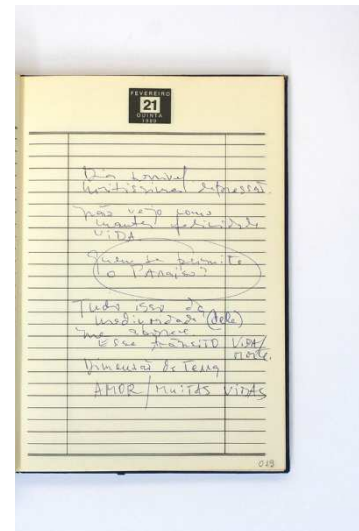 FEVEREIRO
21
QUINTA
Dia horrível
Muitíssima depressão.
Não vejo como
manter felicidade
VIDA
Quem se permite
o PARAÍSO?
Tudo isso da
mediocridade (dele)
me aborrece
Esse trânsito VIDA/
MORTE.
Dimensão da Terra
AMOR / MUITAS VIDAS